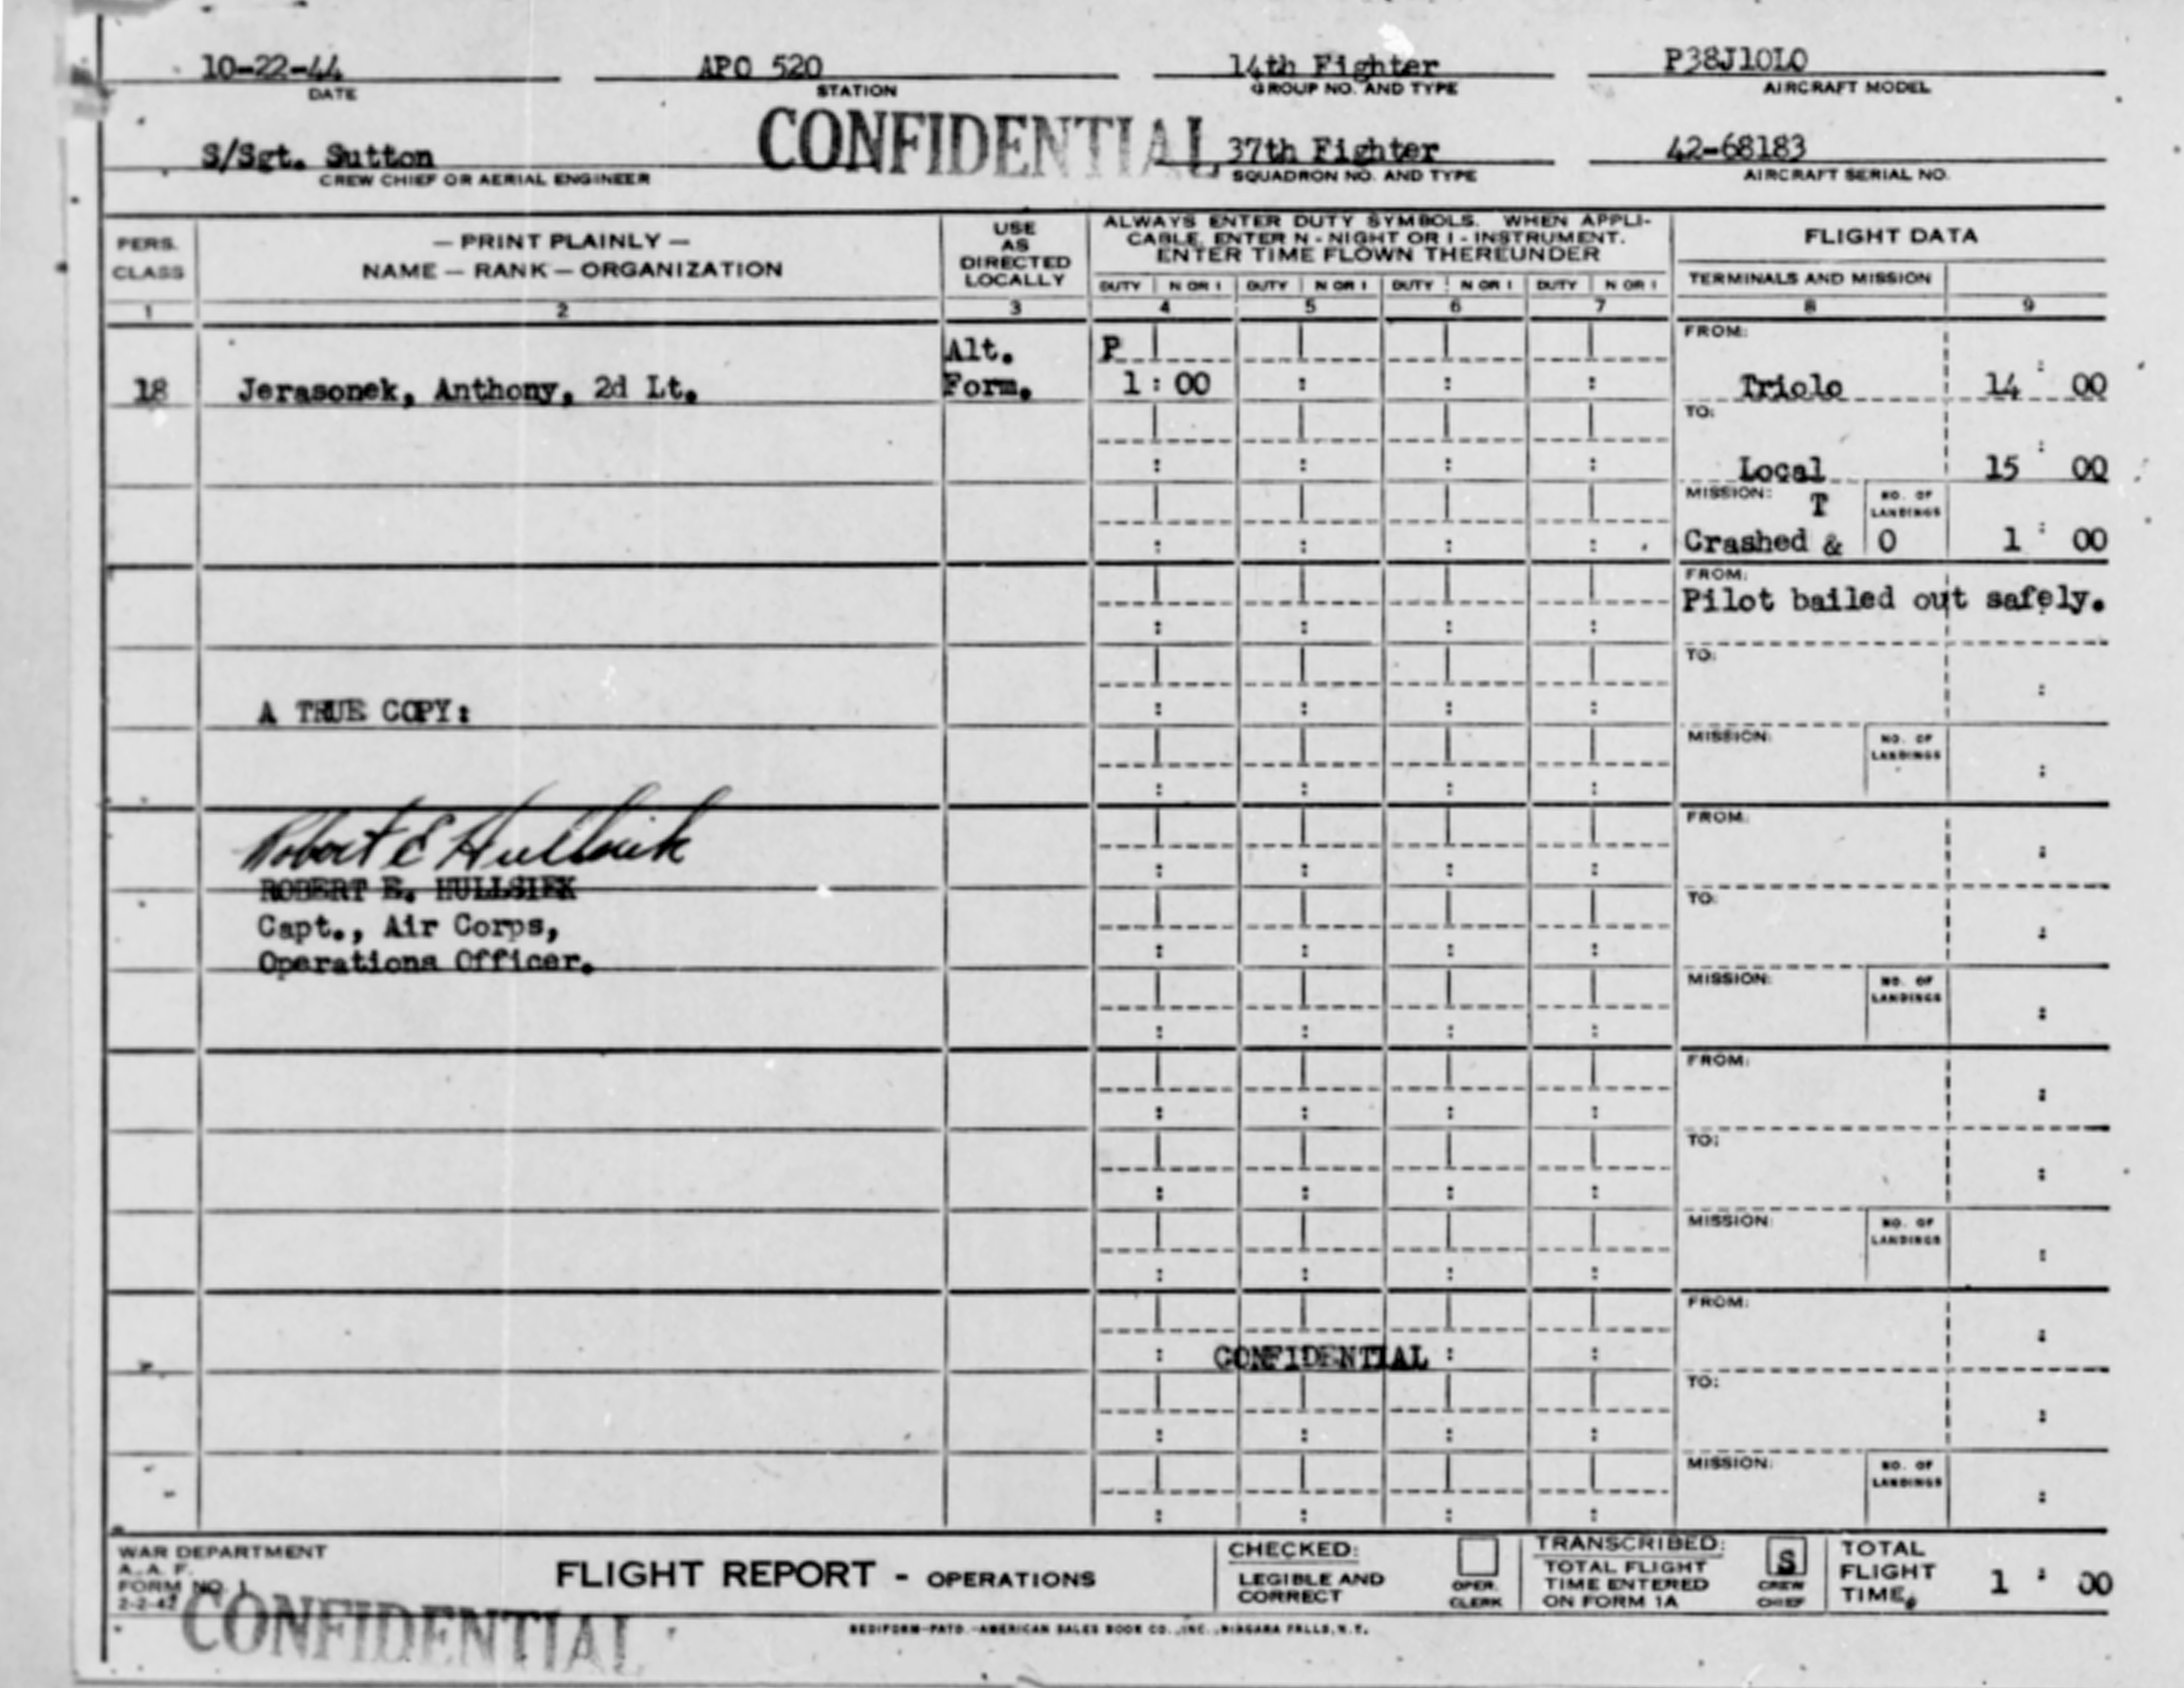 10-22-44 APO 520 14th Fighter P38J10LO
DATE STATION GROUP NO. AND TYPE AIRCRAFT MODEL
CONFIDENTIAL
S/Sgt. Sutton 37th Fighter 42-68183
CREW CHIEF OR AERIAL ENGINEER SQUADRON NO. AND TYPE AIRCRAFT SERIAL NO.
PERS. CLASS
— PRINT PLAINLY —
NAME — RANK — ORGANIZATION
USE
AS
DIRECTED
LOCALLY
ALWAYS ENTER DUTY SYMBOLS. WHEN APPLI-
CABLE, ENTER N - NIGHT OR I - INSTRUMENT.
ENTER TIME FLOWN THEREUNDER
DUTY N OR I DUTY N OR I DUTY N OR I DUTY N OR I
FLIGHT DATA
TERMINALS AND MISSION
1 2 3 4 5 6 7 8 9
18 Jerasonek, Anthony, 2d Lt.
Alt.
Form.
P
1 : 00
FROM:
Triolo 14 : 00
TO:
Local 15 : 00
MISSION: T NO. OF LANDINGS
Crashed & 0 1 : 00
FROM:
Pilot bailed out safely.
TO:
A TRUE COPY:
MISSION: NO. OF LANDINGS
Robert E Hullsiek
ROBERT E. HULLSIEK
Capt., Air Corps,
Operations Officer.
FROM:
TO:
MISSION: NO. OF LANDINGS
FROM:
TO:
MISSION: NO. OF LANDINGS
FROM:
CONFIDENTIAL
TO:
MISSION: NO. OF LANDINGS
WAR DEPARTMENT
A. A. F.
FORM NO. 1
2-2-42
FLIGHT REPORT - OPERATIONS
CHECKED:
LEGIBLE AND
CORRECT
OPER.
CLERK
TRANSCRIBED:
TOTAL FLIGHT
TIME ENTERED
ON FORM 1A
S
CREW
CHIEF
TOTAL
FLIGHT
TIME
1 : 00
CONFIDENTIAL
REDIFORM-PATD.-AMERICAN SALES BOOK CO., INC., NIAGARA FALLS, N.Y.